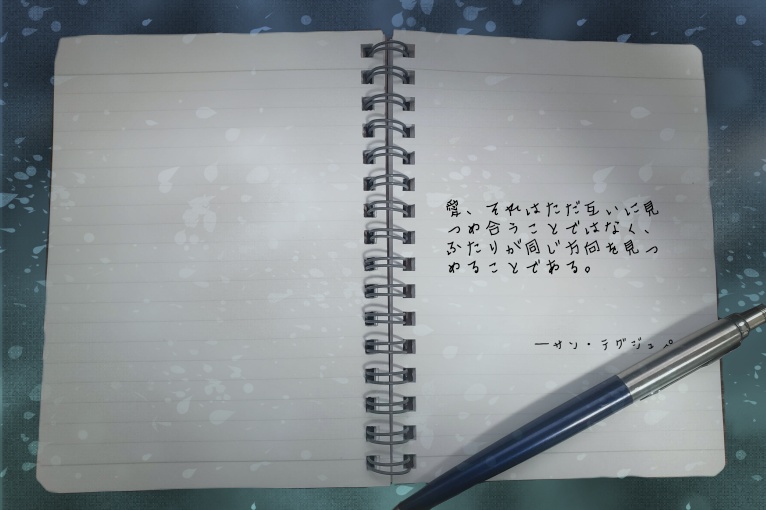 愛、それはただ互いに見
つめ合うことではなく、
ふたりが同じ方向を見つ
めることである。
—サン・テグジュペ